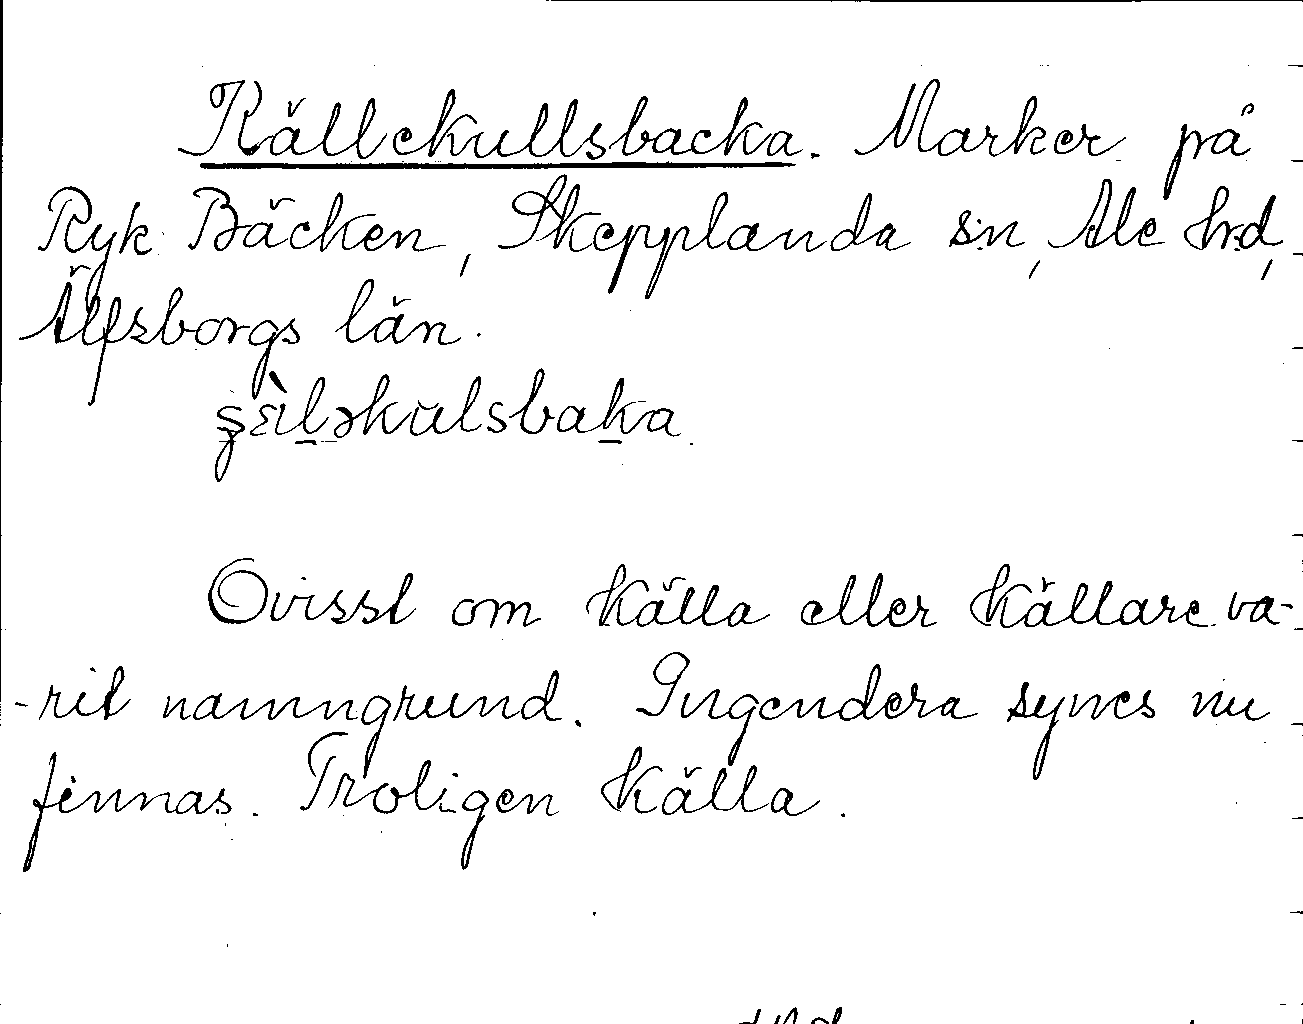 Källekullsbacka. Marker på
Ryk Bäcken, Skepplanda sn, Ale hrd,
Älfsborgs län.
Ovisst om källa eller källare va-
-rit namngrund. Ingendera synes nu
finnas. Troligen källa.